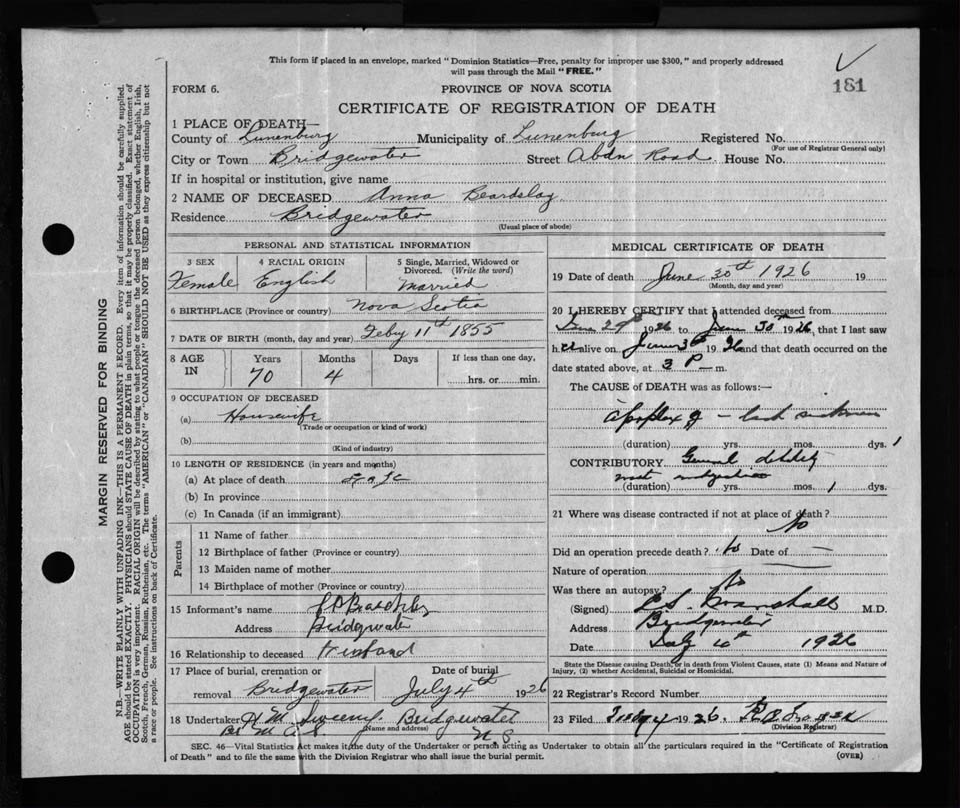 This form if placed in an envelope, marked "Dominion Statistics—Free, penalty for improper use $300," and properly addressed
will pass through the Mail "FREE."
181
FORM 6. PROVINCE OF NOVA SCOTIA
CERTIFICATE OF REGISTRATION OF DEATH
1 PLACE OF DEATH—
County of Lunenburg Municipality of Lunenburg Registered No.
(For use of Registrar General only)
City or Town Bridgewater Street Abdn Road House No.
If in hospital or institution, give name
2 NAME OF DECEASED Anna Beardslay
Residence Bridgewater
(Usual place of abode)
PERSONAL AND STATISTICAL INFORMATION
3 SEX 4 RACIAL ORIGIN 5 Single, Married, Widowed or Divorced. (Write the word)
Female English Married
6 BIRTHPLACE (Province or country) Nova Scotia
7 DATE OF BIRTH (month, day and year) Feby 11th 1855
8 AGE IN Years Months Days If less than one day,
70 4 hrs. or min.
9 OCCUPATION OF DECEASED
(a) Housewife
(Trade or occupation or kind of work)
(b)
(Kind of industry)
10 LENGTH OF RESIDENCE (in years and months)
(a) At place of death
(b) In province
(c) In Canada (if an immigrant)
Parents
11 Name of father
12 Birthplace of father (Province or country)
13 Maiden name of mother
14 Birthplace of mother (Province or country)
15 Informant's name
Address Bridgewater
16 Relationship to deceased Husband
17 Place of burial, cremation or Date of burial
removal Bridgewater July 4th 1926
18 Undertaker H M Sweeny Bridgewater
(Name and address) N S
MEDICAL CERTIFICATE OF DEATH
19 Date of death June 30th 1926 19
(Month, day and year)
20 I HEREBY CERTIFY that I attended deceased from
June 29th 1926 to June 30th 1926, that I last saw
her alive on 1926 and that death occurred on the
date stated above, at 3 P m.
The CAUSE of DEATH was as follows:—
Apoplexy
(duration) yrs. mos. dys. 1
CONTRIBUTORY General debility
(duration) yrs. mos. 1 dys.
21 Where was disease contracted if not at place of death?
No
Did an operation precede death? No Date of —
Nature of operation
Was there an autopsy? No
(Signed) Marshall M.D.
Address Bridgewater
Date July 1926
State the Disease causing Death, or in death from Violent Causes, state (1) Means and Nature of
Injury, (2) whether Accidental, Suicidal or Homicidal.
22 Registrar's Record Number
23 Filed 1926,
(Division Registrar)
SEC. 46—Vital Statistics Act makes it the duty of the Undertaker or person acting as Undertaker to obtain all the particulars required in the "Certificate of Registration
of Death" and to file the same with the Division Registrar who shall issue the burial permit. (OVER)
MARGIN RESERVED FOR BINDING
N.B.—WRITE PLAINLY WITH UNFADING INK—THIS IS A PERMANENT RECORD. Every item of information should be carefully supplied.
AGE should be stated EXACTLY. PHYSICIANS should STATE CAUSE OF DEATH in plain terms, so that it may be properly classified. Exact statement of
OCCUPATION is very important. RACIAL ORIGIN will be described by stating to what people or tongue the deceased person belonged, whether English, Irish,
Scotch, French, German, Russian, Ruthenian, etc. The terms "AMERICAN" or "CANADIAN" SHOULD NOT BE USED as they express citizenship but not
a race or people. See instructions on back of Certificate.